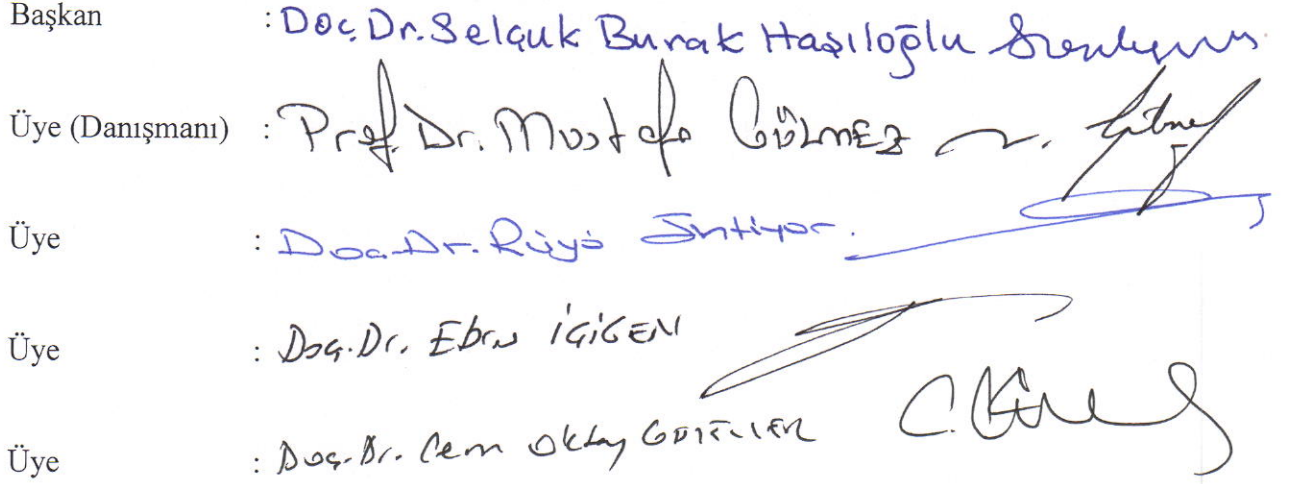 Başkan : Doç. Dr. Selçuk Burak Haşıloğlu
Üye (Danışmanı) : Prof. Dr. Mustafa GÜLMEZ
Üye : Doç. Dr. Rüya
Üye : Doç. Dr. Ebru İÇİGEN
Üye : Doç. Dr. Cem Oktay